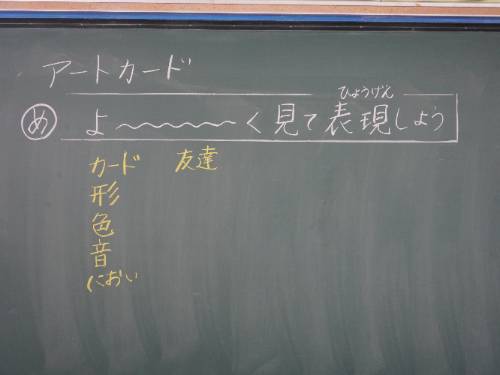 アートカード
ひょうげん
め よ〜〜〜〜〜く見て表現しよう
カード 友達
形
色
音
におい